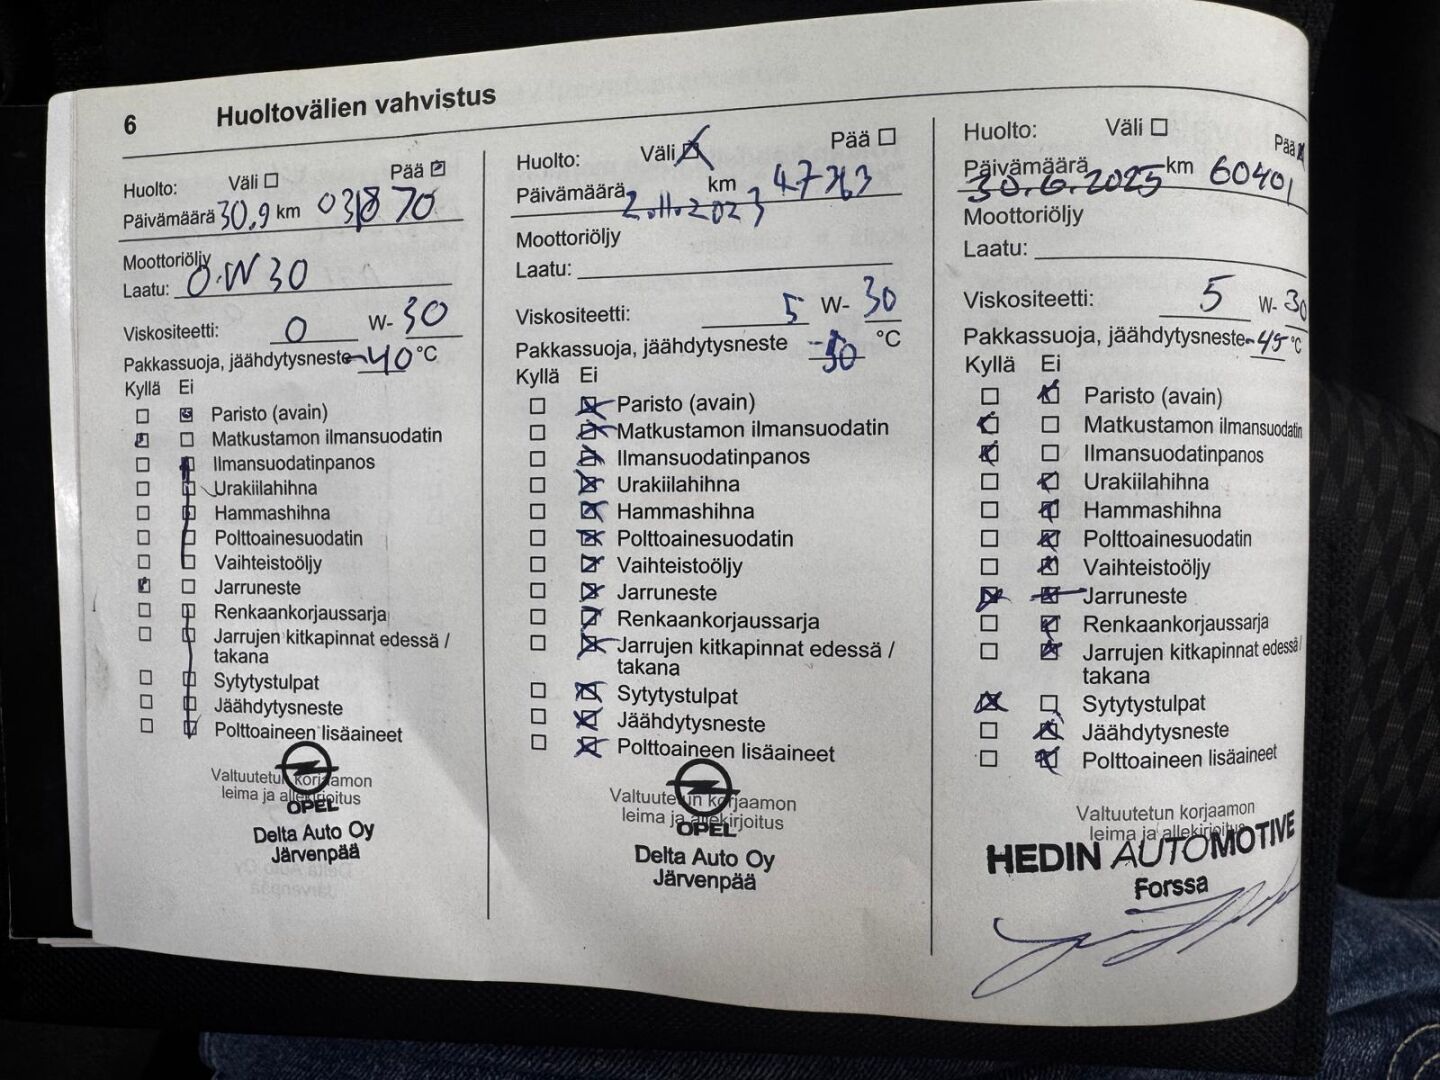 6 Huoltovälien vahvistus
Huolto: Väli Pää
Päivämäärä 30.9 km 031870
Moottoriöljy
Laatu: 0W30
Viskositeetti: 0 W- 30
Pakkassuoja, jäähdytysneste -40 °C
Kyllä Ei
Paristo (avain)
Matkustamon ilmansuodatin
Ilmansuodatinpanos
Urakiilahihna
Hammashihna
Polttoainesuodatin
Vaihteistoöljy
Jarruneste
Renkaankorjaussarja
Jarrujen kitkapinnat edessä /
takana
Sytytystulpat
Jäähdytysneste
Polttoaineen lisäaineet
Valtuutetun korjaamon
leima ja allekirjoitus
OPEL
Delta Auto Oy
Järvenpää
Huolto: Väli Pää
Päivämäärä 2.11.2023 km 47363
Moottoriöljy
Laatu:
Viskositeetti: 5 W- 30
Pakkassuoja, jäähdytysneste -30 °C
Kyllä Ei
Paristo (avain)
Matkustamon ilmansuodatin
Ilmansuodatinpanos
Urakiilahihna
Hammashihna
Polttoainesuodatin
Vaihteistoöljy
Jarruneste
Renkaankorjaussarja
Jarrujen kitkapinnat edessä /
takana
Sytytystulpat
Jäähdytysneste
Polttoaineen lisäaineet
Valtuutetun korjaamon
leima ja allekirjoitus
OPEL
Delta Auto Oy
Järvenpää
Huolto: Väli Pää
Päivämäärä 30.6.2025 km 60401
Moottoriöljy
Laatu:
Viskositeetti: 5 W- 30
Pakkassuoja, jäähdytysneste -45 °C
Kyllä Ei
Paristo (avain)
Matkustamon ilmansuodatin
Ilmansuodatinpanos
Urakiilahihna
Hammashihna
Polttoainesuodatin
Vaihteistoöljy
Jarruneste
Renkaankorjaussarja
Jarrujen kitkapinnat edessä /
takana
Sytytystulpat
Jäähdytysneste
Polttoaineen lisäaineet
Valtuutetun korjaamon
leima ja allekirjoitus
HEDIN AUTOMOTIVE
Forssa